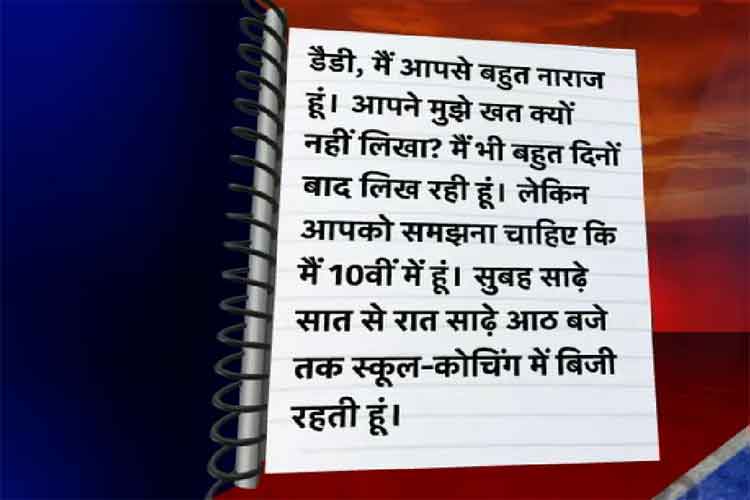 डैडी, मैं आपसे बहुत नाराज
हूं। आपने मुझे खत क्यों
नहीं लिखा? मैं भी बहुत दिनों
बाद लिख रही हूं। लेकिन
आपको समझना चाहिए कि
मैं 10वीं में हूं। सुबह साढ़े
सात से रात साढ़े आठ बजे
तक स्कूल-कोचिंग में बिजी
रहती हूं।